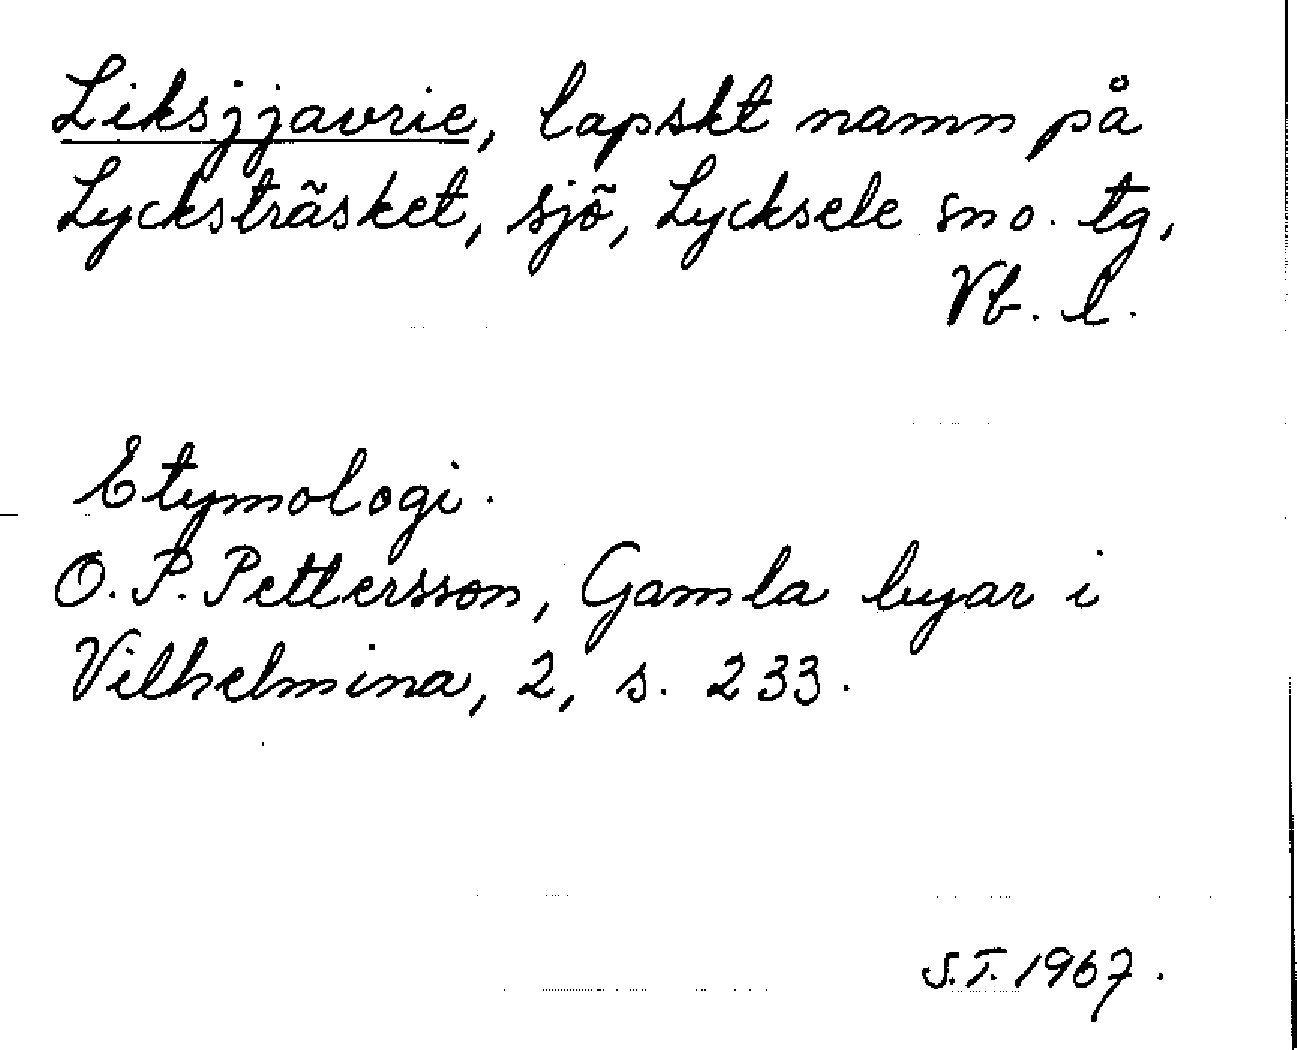 Liksjjavrie, lapskt namn på
Lycksträsket, sjö, Lycksele sn o. tg,
Vb. l.
Etymologi.
O. P. Pettersson, Gamla byar i
Vilhelmina, 2, s. 233.
S.T. 1967.